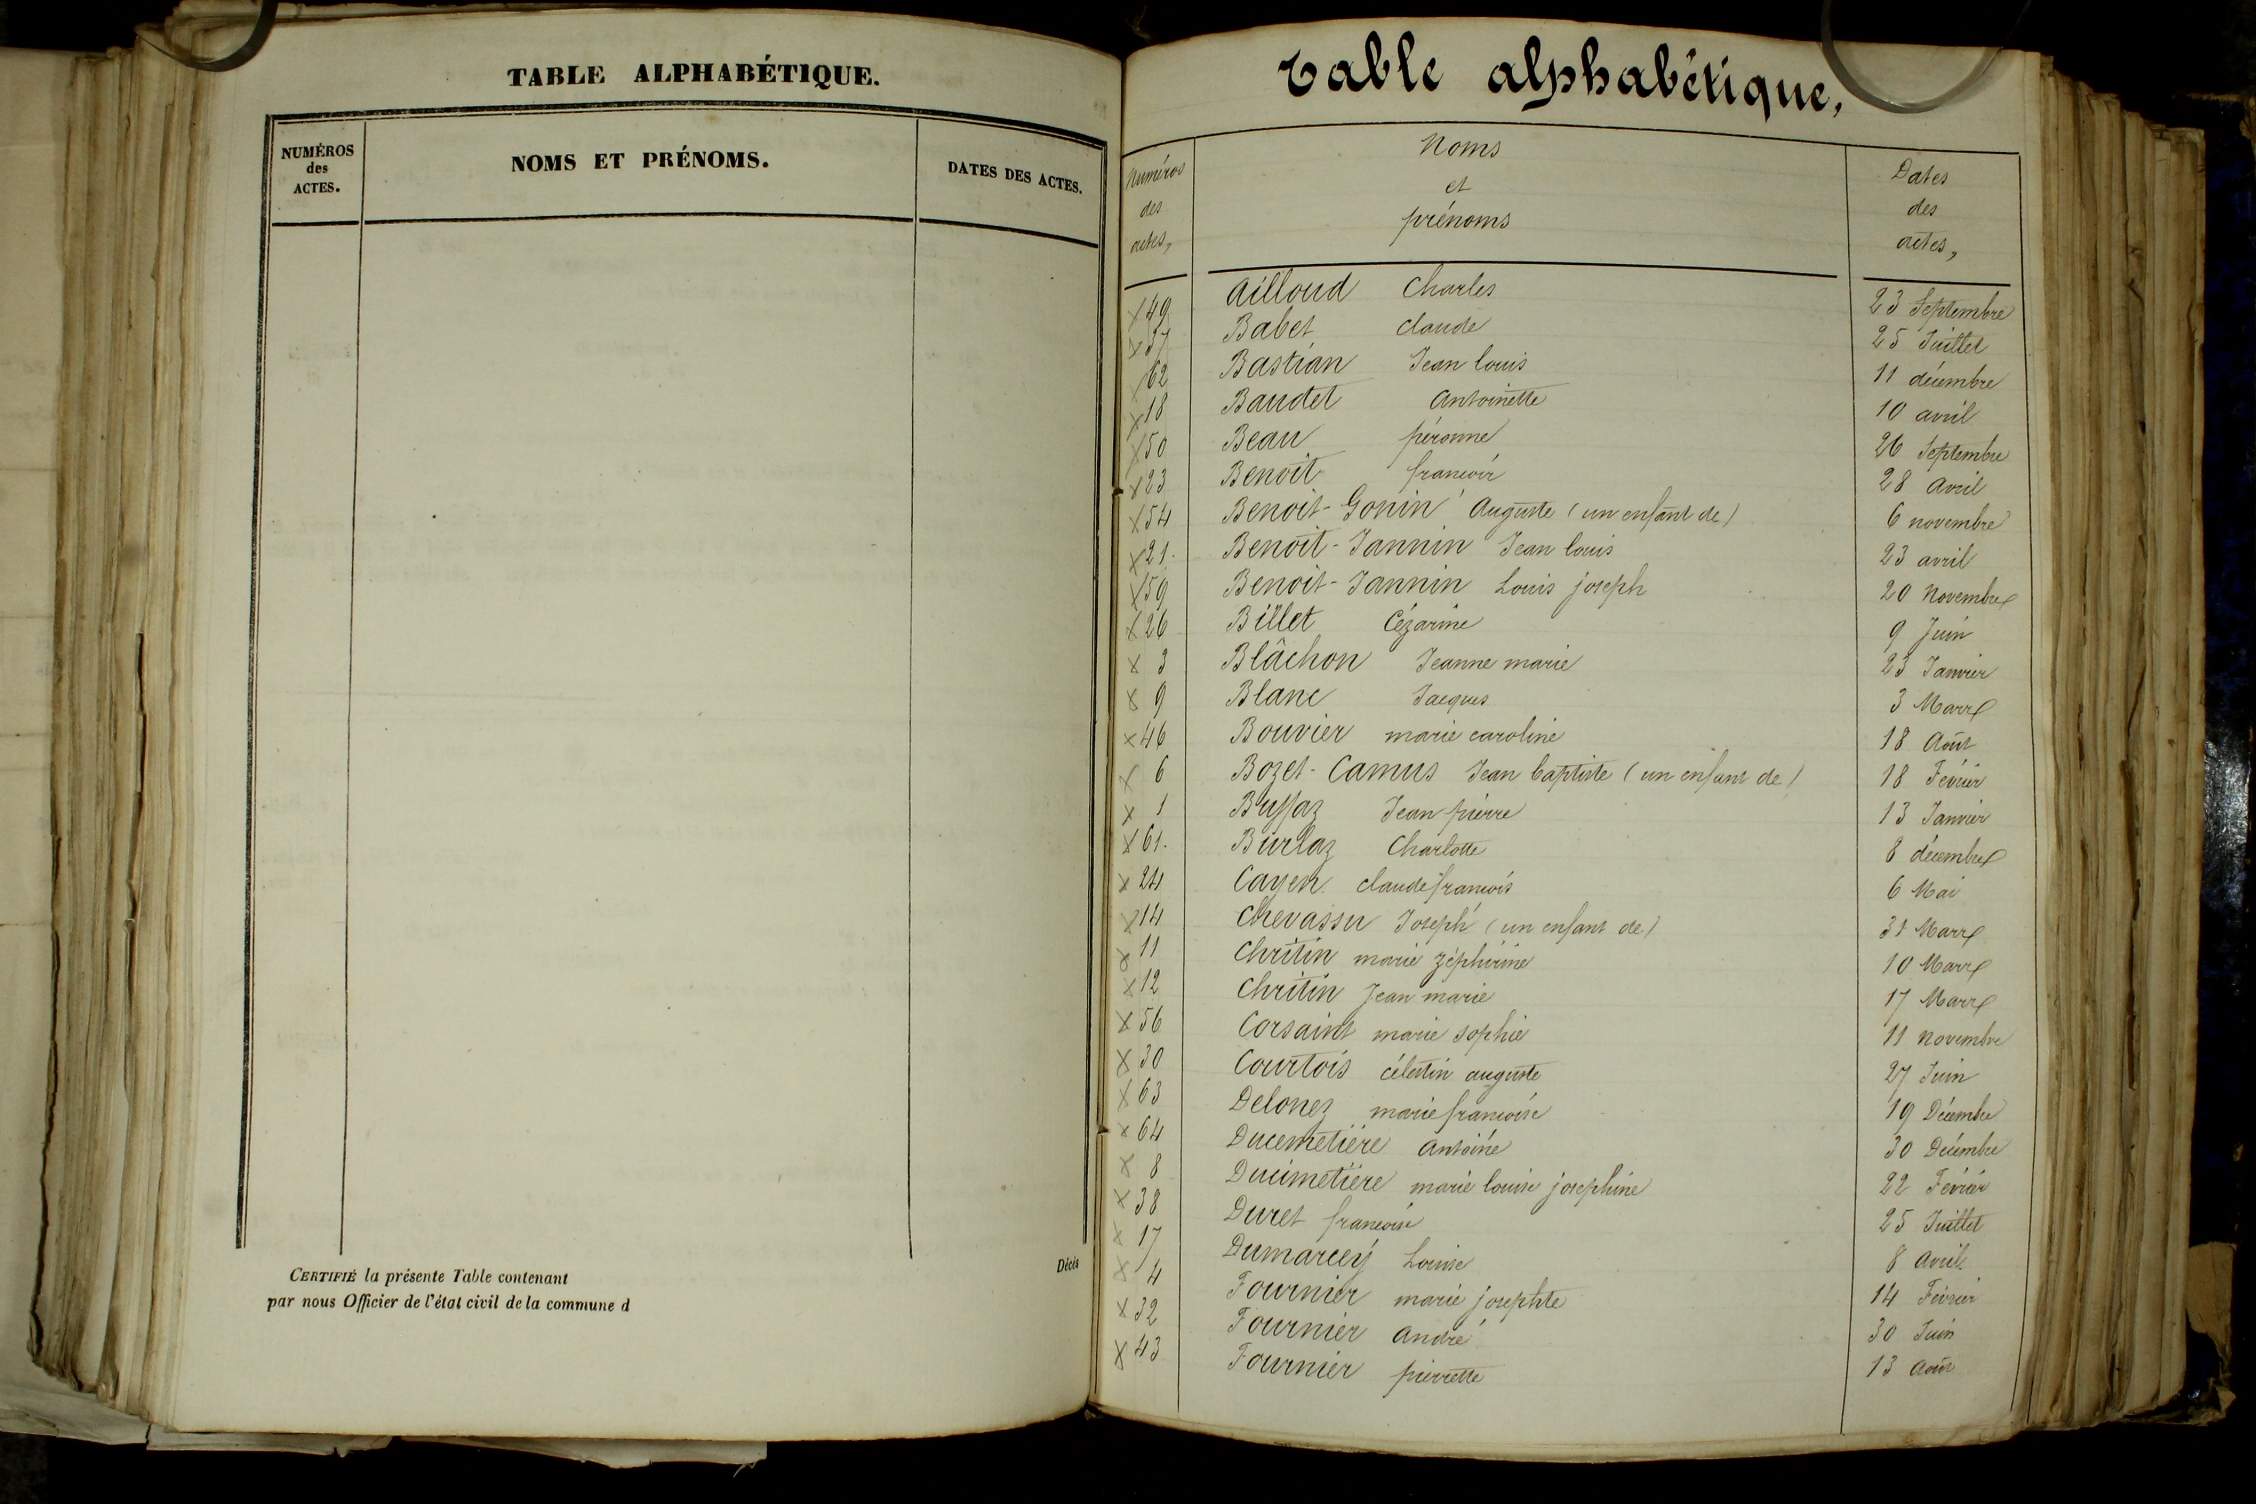 TABLE ALPHABÉTIQUE.
NUMÉROS
des
ACTES.
NOMS ET PRÉNOMS.
DATES DES ACTES.
CERTIFIÉ la présente Table contenant
par nous Officier de l'état civil de la commune d
Décès
Table alphabétique,
Numéros
des
actes,
Noms
et
prénoms
Dates
des
actes,
x 49 Ailloud Charles 23 Septembre
x 37 Babet Claude 25 Juillet
x 62 Bastian Jean Louis 11 décembre
x 18 Baudet Antoinette 10 avril
x 50 Beau péronne 26 Septembre
x 23 Benoit francois 28 Avril
x 54 Benoit-Gonin Auguste (un enfant de) 6 novembre
x 21. Benoit-Jannin Jean Louis 23 avril
x 59 Benoit-Jannin Louis joseph 20 Novembre
x 26 Billet Cézarine 9 Juin
x 3 Blâchon Jeanne marie 23 Janvier
x 9 Blanc Jacques 3 Mars
x 46 Bouvier marie caroline 18 Août
x 6 Bozet-Camus Jean baptiste (un enfant de) 18 Févrièr
x 1 Buffaz Jean pierre 13 Janvier
x 61. Burlaz Charlotte 8 décembre
x 24 Cayen claude francois 6 Mai
x 14 Chevassu Joseph (un enfant de) 31 Mars
x 11 Chritin marie zéphirine 10 Mars
x 12 Chritin Jean marie 17 Mars
x 56 Corsaint marie sophie 11 Novembre
x 30 Courtois célestin auguste 27 Juin
x 63 Delonez marie francoise 19 Décembre
x 64 Ducemetière Antoine 30 Décembre
x 8 Ducimetière marie louise josephine 22 Févrièr
x 38 Duret francoise 25 Juillet
x 17 Dumarcey Louise 8 Avril
x 4 Fournier marie josephte 14 Février
x 32 Fournier André 30 Juin
x 43 Fournier pierrette 13 Août